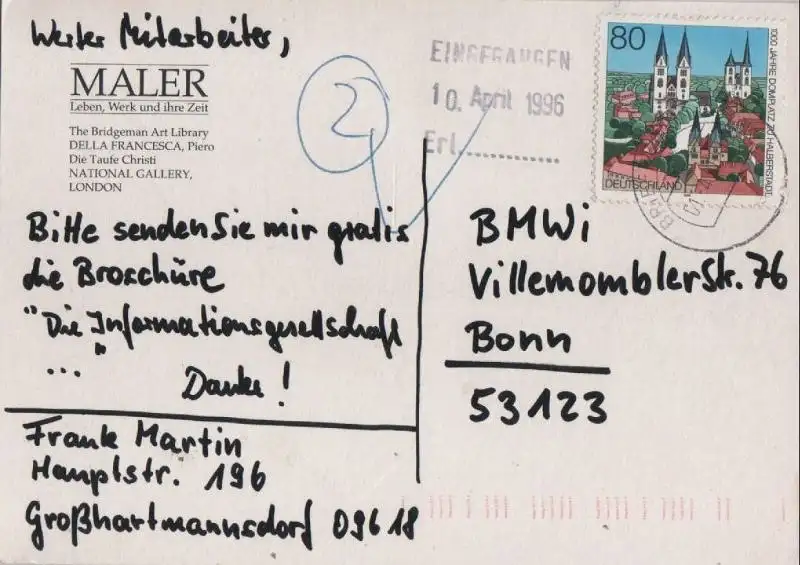 Werter Mitarbeiter,
MALER
Leben, Werk und ihre Zeit
The Bridgeman Art Library
DELLA FRANCESCA, Piero
Die Taufe Christi
NATIONAL GALLERY,
LONDON
2
EINGEGANGEN
10. April 1996
Erl.............
80
1000 JAHRE DOMPLATZ ZU HALBERSTADT
DEUTSCHLAND
BRIEF
Bitte senden Sie mir gratis
die Broschüre
"Die Informationsgesellschaft
..."
Danke!
Frank Martin
Hauptstr. 196
Großhartmannsdorf 09618
BMWi
Villemomblerstr. 76
Bonn
53123